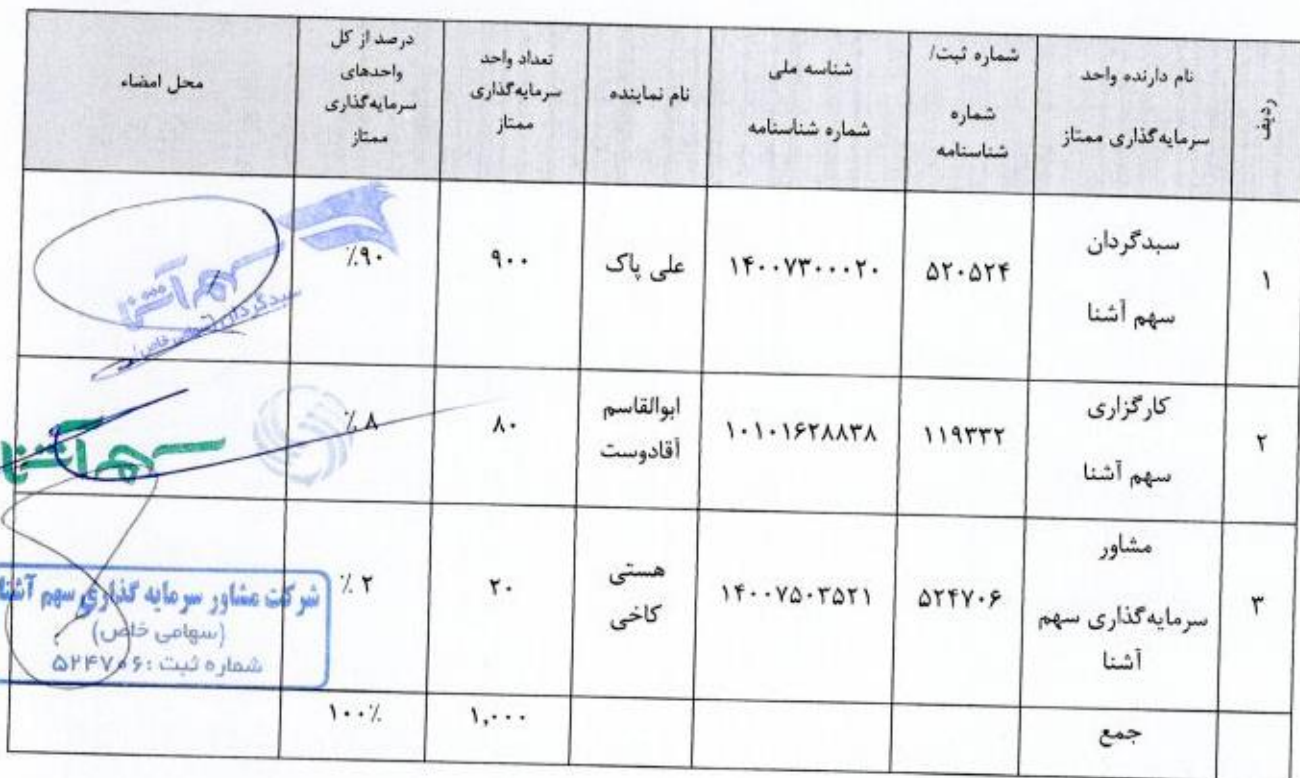 ردیف
نام دارنده واحد
سرمایه‌گذاری ممتاز
شماره ثبت/
شماره
شناسنامه
شناسه ملی
شماره شناسنامه
نام نماینده
تعداد واحد
سرمایه‌گذاری
ممتاز
درصد از کل
واحدهای
سرمایه‌گذاری
ممتاز
محل امضاء
۱
سبدگردان
سهم آشنا
۵۲۰۵۲۴
۱۴۰۰۷۳۰۰۰۲۰
علی پاک
۹۰۰
٪۹۰
سهم آشنا
سبدگردان
۲
کارگزاری
سهم آشنا
۱۱۹۳۳۲
۱۰۱۰۱۶۲۸۸۳۸
ابوالقاسم
آقادوست
۸۰
٪ ۸
سهم آشنا
۳
مشاور
سرمایه‌گذاری سهم
آشنا
۵۲۴۷۰۶
۱۴۰۰۷۵۰۳۵۲۱
هستی
کاخی
۲۰
٪ ۲
شرکت مشاور سرمایه گذاری سهم آشنا
(سهامی خاص)
شماره ثبت :۵۲۴۷۰۶
جمع
۱,۰۰۰
۱۰۰٪